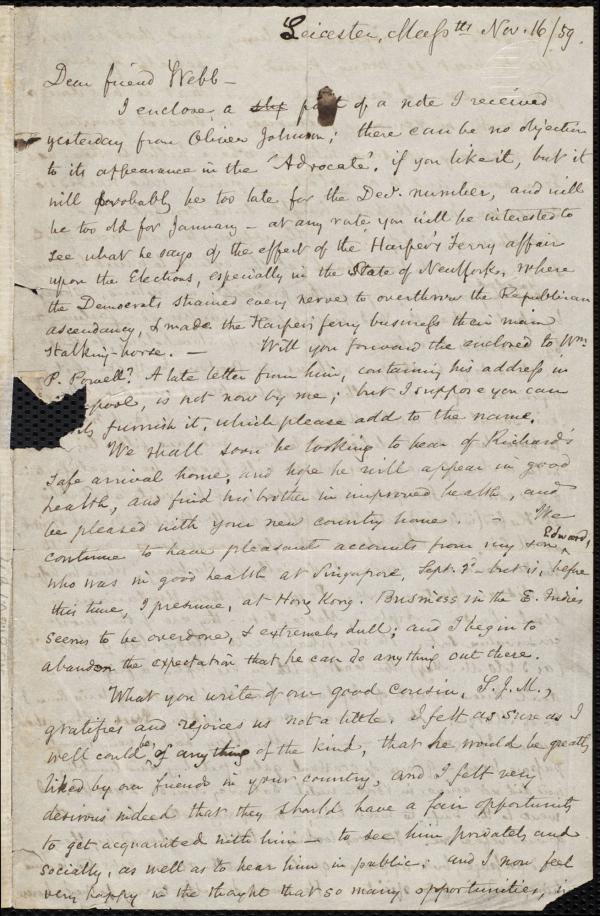 Leicester, Mass.tts Nov. 16/59.
Dear friend Webb—
I enclose a slip part of a note I received
yesterday from Oliver Johnson; there can be no objection
to its appearance in the "Advocate", if you like it, but it
will probably be too late for the Decr. number, and will
be too old for January — at any rate you will be interested to
see what he says of the effect of the Harper's Ferry affair
upon the Elections, especially in the State of New York, where
the Democrats strained every nerve to overthrow the Republican
ascendancy, & made the Harper's ferry business their main
stalking-horse. — Will you forward the enclosed to Wm.
P. Powell? A late letter from him, containing his address in
pool, is not now by me; but I suppose you can
furnish it, which please add to the name.
We shall soon be looking to hear of Richard's
safe arrival home, and hope he will appear in good
health, and find his brother in improved health, and
be pleased with your new country home. — We
continue to have pleasant accounts from my son Edward,
who was in good health at Singapore, Sept. 3d — but is, before
this time, I presume, at Hong Kong. Business in the E. Indies
seems to be overdone, & extremely dull; and I begin to
abandon the expectation that he can do anything out there.
What you write of our good cousin, S. J. M.,
gratifies and rejoices us not a little. I felt as sure as I
well could be, of anything of the kind, that he would be greatly
liked by our friends in your country, and I felt very
desirous indeed that they should have a fair opportunity
to get acquainted with him — to see him privately and
socially, as well as to hear him in public: and I now feel
very happy in the thought that so many opportunities, in